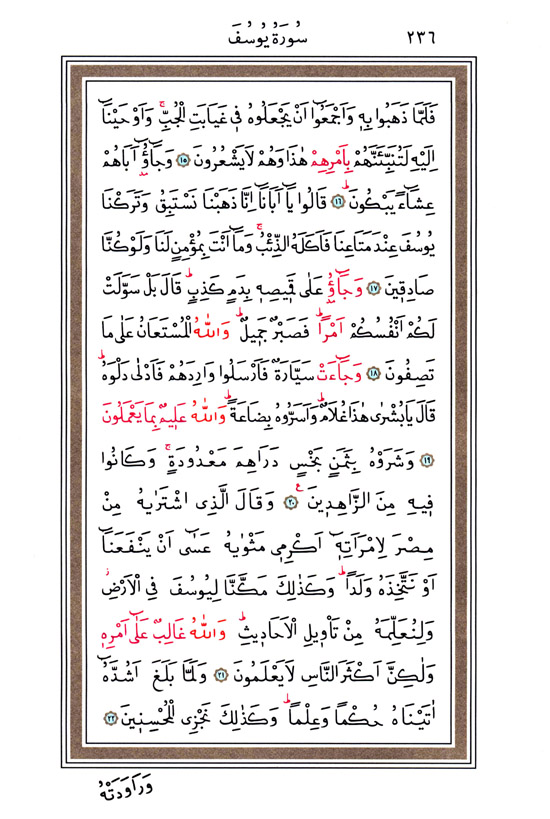 سُورَةُ يُوسُفَ ٢٣٦
فَلَمَّا ذَهَبُوا بِهٖ وَاَجْمَعُٓوا اَنْ يَجْعَلُوهُ فٖي غَيَابَتِ الْجُبِّۚ وَاَوْحَيْنَٓا
اِلَيْهِ لَتُنَبِّئَنَّهُمْ بِاَمْرِهِمْ هٰذَا وَهُمْ لَا يَشْعُرُونَ ﴿١٥﴾ وَجَٓاؤُٓ اَبَاهُمْ
عِشَٓاءً يَبْكُونَۜ ﴿١٦﴾ قَالُوا يَٓا اَبَانَٓا اِنَّا ذَهَبْنَا نَسْتَبِقُ وَتَرَكْنَا
يُوسُفَ عِنْدَ مَتَاعِنَا فَاَكَلَهُ الذِّئْبُۚ وَمَٓا اَنْتَ بِمُؤْمِنٍ لَنَا وَلَوْ كُنَّا
صَادِقٖينَ ﴿١٧﴾ وَجَٓاؤُ۫ عَلٰى قَمٖيصِهٖ بِدَمٍ كَذِبٍۜ قَالَ بَلْ سَوَّلَتْ
لَكُمْ اَنْفُسُكُمْ اَمْراًۜ فَصَبْرٌ جَمٖيلٌۜ وَاللّٰهُ الْمُسْتَعَانُ عَلٰى مَا
تَصِفُونَۜ ﴿١٨﴾ وَجَٓاءَتْ سَيَّارَةٌ فَاَرْسَلُوا وَارِدَهُمْ فَاَدْلٰى دَلْوَهُۜ
قَالَ يَا بُشْرٰى هٰذَا غُلَامٌۜ وَاَسَرُّوهُ بِضَاعَةًۜ وَاللّٰهُ عَلٖيمٌ بِمَا يَعْمَلُونَ
﴿١٩﴾ وَشَرَوْهُ بِثَمَنٍ بَخْسٍ دَرَاهِمَ مَعْدُودَةٍۚ وَكَانُوا
فٖيهِ مِنَ الزَّاهِدٖينَ ﴿٢٠﴾ وَقَالَ الَّذِي اشْتَرٰيهُ مِنْ
مِصْرَ لِامْرَاَتِهٖٓ اَكْرِمٖي مَثْوٰيهُ عَسٰٓى اَنْ يَنْفَعَنَٓا
اَوْ نَتَّخِذَهُ وَلَداًۜ وَكَذٰلِكَ مَكَّنَّا لِيُوسُفَ فِي الْاَرْضِۘ
وَلِنُعَلِّمَهُ مِنْ تَأْوٖيلِ الْاَحَادٖيثِۜ وَاللّٰهُ غَالِبٌ عَلٰٓى اَمْرِهٖ
وَلٰكِنَّ اَكْثَرَ النَّاسِ لَا يَعْلَمُونَ ﴿٢١﴾ وَلَمَّا بَلَغَ اَشُدَّهُٓ
اٰتَيْنَاهُ حُكْماً وَعِلْماًۜ وَكَذٰلِكَ نَجْزِي الْمُحْسِنٖينَ ﴿٢٢﴾
وَرَاوَدَتْهُ